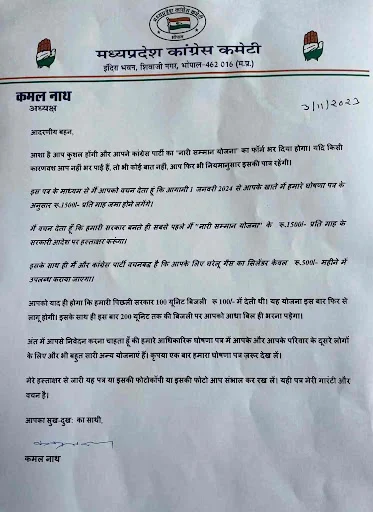 मध्यप्रदेश कांग्रेस कमेटी
भोपाल
मध्यप्रदेश कांग्रेस कमेटी
इंदिरा भवन, शिवाजी नगर, भोपाल-462 016 (म.प्र.)
कमल नाथ
अध्यक्ष
3/11/2023
आदरणीय बहन,
आशा है आप कुशल होंगी और आपने कांग्रेस पार्टी का "नारी सम्मान योजना" का फॉर्म भर दिया होगा। यदि किसी
कारणवश आप नहीं भर पाई हैं, तो भी कोई बात नहीं, आप फिर भी नियमानुसार इसकी पात्र रहेंगी।
इस पत्र के माध्यम से मैं आपको वचन देता हूँ कि आगामी 1 जनवरी 2024 से आपके खाते में हमारे घोषणा पत्र के
अनुसार रू.1500/- प्रति माह जमा होने लगेंगे।
मैं वचन देता हूँ कि हमारी सरकार बनते ही सबसे पहले मैं "नारी सम्मान योजना" के रू.1500/- प्रति माह के
सरकारी आदेश पर हस्ताक्षर करूंगा।
इसके साथ ही मैं और कांग्रेस पार्टी वचनबद्ध है कि आपके लिए घरेलू गैस का सिलेंडर केवल रू.500/- महीने में
उपलब्ध कराया जाएगा।
आपको याद ही होगा कि हमारी पिछली सरकार 100 यूनिट बिजली रू 100/- में देती थी। यह योजना इस बार फिर से
लागू होगी। इसके साथ ही इस बार 200 यूनिट तक की बिजली पर आपको आधा बिल ही भरना पड़ेगा।
अंत में आपसे निवेदन करना चाहता हूँ की हमारे आधिकारिक घोषणा पत्र में आपके और आपके परिवार के दूसरे लोगों
के लिए और भी बहुत सारी अन्य योजनाएं हैं। कृपया एक बार हमारा घोषणा पत्र ज़रूर देख लें।
मेरे हस्ताक्षर से जारी यह पत्र या इसकी फोटोकॉपी या इसकी फोटो आप संभाल कर रख लें। यही पत्र मेरी गारंटी और
वचन है।
आपका सुख-दुख: का साथी,
कमल नाथ